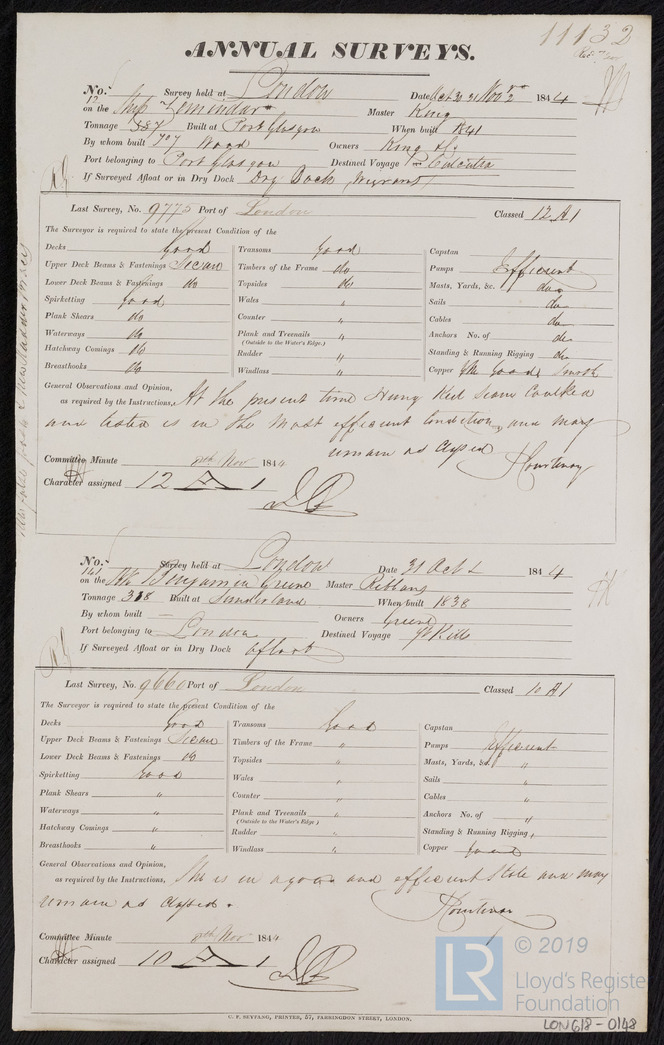 11132
ANNUAL SURVEYS.
No. Survey held at London Date Oct 30 31 Nov 2nd 1844
12 on the Ship Zemindar Master King
Tonnage 887 Built at Port Glasgow When built 1841
By whom built Wood Owners King &
Port belonging to Port Glasgow Destined Voyage Calcutta
If Surveyed Afloat or in Dry Dock Dry Dock, Wigrams
Last Survey, No. 9775 Port of London Classed 12 A1
The Surveyor is required to state the present Condition of the
Decks Good Transoms Good Capstan
Upper Deck Beams & Fastenings Secure Timbers of the Frame do Pumps Efficient
Lower Deck Beams & Fastenings do Topsides do Masts, Yards, &c. do
Spirketting Good Wales " Sails do
Plank Shears do Counter " Cables do
Waterways do Plank and Treenails " Anchors No. of do
(Outside to the Water's Edge.)
Hatchway Comings do Rudder " Standing & Running Rigging do
Breasthooks do Windlass " Copper Good
General Observations and Opinion,
as required by the Instructions, At the present time
is in the most efficient Condition, and may
remain as Classed Courtenay
Committee Minute 8th Nov 1844
Character assigned 12 A 1
No. Survey held at London Date 31 Oct 1844
141 on the Benjamin Greene Master
Tonnage 318 Built at Sunderland When built 1838
By whom built — Owners Greene
Port belonging to London Destined Voyage St Kitts
If Surveyed Afloat or in Dry Dock Afloat
Last Survey, No. 9660 Port of London Classed 10 A1
The Surveyor is required to state the present Condition of the
Decks Good Transoms Good Capstan
Upper Deck Beams & Fastenings Secure Timbers of the Frame " Pumps Efficient
Lower Deck Beams & Fastenings do Topsides " Masts, Yards, &c. "
Spirketting Good Wales " Sails "
Plank Shears " Counter " Cables "
Waterways " Plank and Treenails " Anchors No. of "
(Outside to the Water's Edge.)
Hatchway Comings " Rudder " Standing & Running Rigging "
Breasthooks " Windlass " Copper Good
General Observations and Opinion,
as required by the Instructions, She is in a good and efficient State and may
remain as Classed. Courtenay
Committee Minute 8th Nov 1844
Character assigned 10 A 1
C. F. SEYFANG, PRINTER, 57, FARRINGDON STREET, LONDON.
LR © 2019
Lloyd's Register
Foundation
LON618-0148